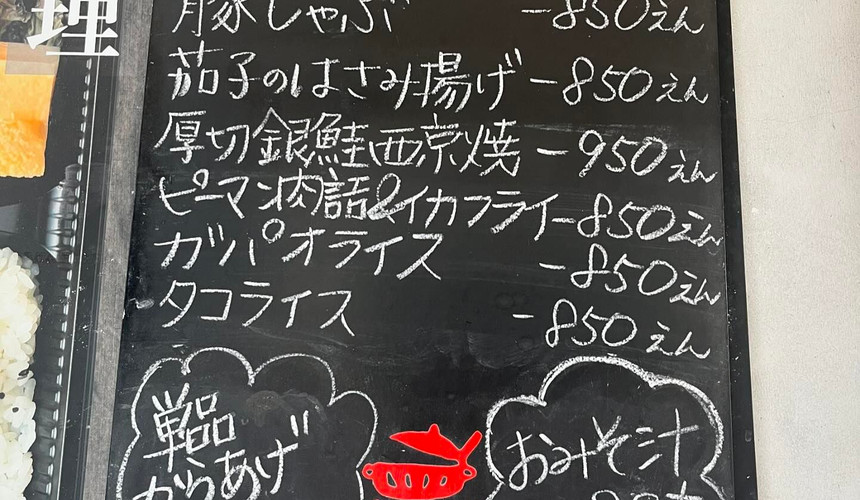 理
豚しゃぶ -850えん
茄子のはさみ揚げ -850えん
厚切銀鮭西京焼 -950えん
ピーマン肉詰&イカフライ -850えん
ガパオライス -850えん
タコライス -850えん
単品
からあげ
おみそ汁